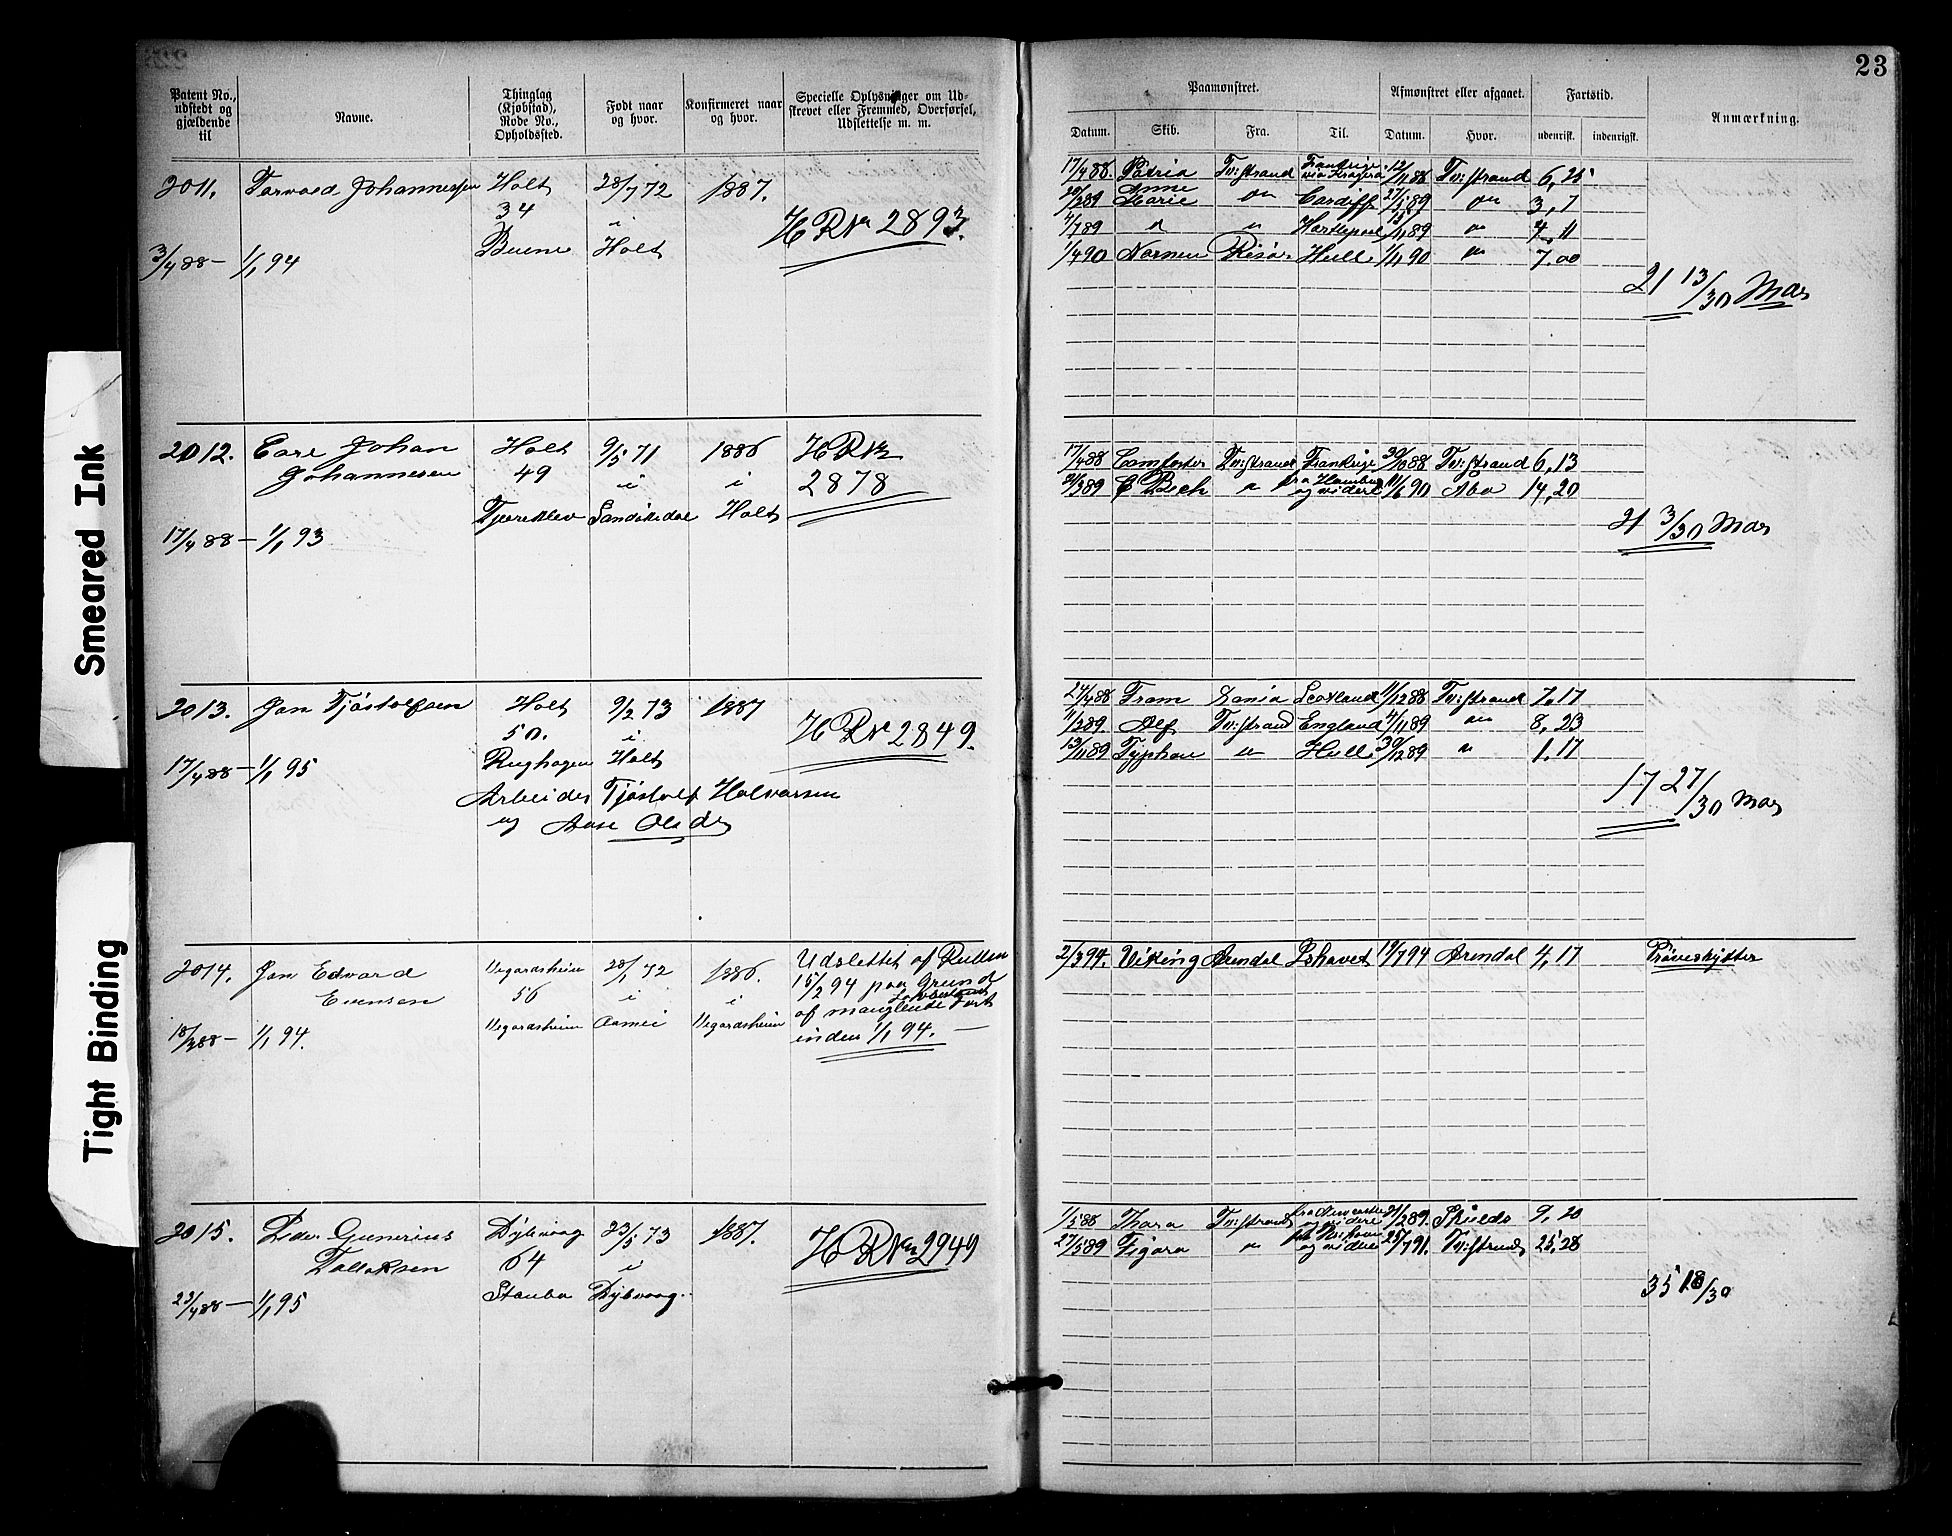 23
Patent No., udstedt og gjældende til
Navne.
Thinglag (Kjøbstad), Rode No., Opholdssted.
Født naar og hvor.
Konfirmeret naar og hvor.
Specielle Oplysninger om Udskrevet eller Fremmed, Overførsel, Udslettelse m. m.
Paamønstret.
Afmønstret eller afgaaet.
Fartstid.
Anmærkning.
Datum. Skib. Fra. Til. Datum. Hvor. udenrigsk. indenrigsk.
2011. Torvald Johannessen Holt 28/7 72 1887.
34 i
3/4 88 – 1/1 94 Holt
H R Nr 2893.
17/4 88. Patria Tv:strand Frankrige 12/11 88 Tv:strand 6,25
Anne Marie Cardiff 27/5 89 3,7
4/7 89 Hartlepool 89 4,11
1/4 90 Nornen Risør Hull 1/11 90 7,00
21 13/30 Mdr
2012. Carl Johan Johannesen Holt 9/5 71 1886
49 i i
Sandikedal Holt
17/4 88 – 1/1 93
H R Nr 2878
17/4 88 Comfoster Tv:strand Frankrige 30/10 88 Tv:strand 6,13
89 C Bech fra Hamburg og videre 11/6 90 Abo 14,20
21 3/30 Mdr
2013. Jan Tjøstolfsen Holt 9/2 73 1887
50. i
Holt
17/4 88 – 1/1 95
Arbeider Tjøstolf Halvorsen
og Aase Olsdr
H R Nr 2849.
24/4 88 Fram Scotland 11/12 88 Tv:strand 7,17
11/2 89. Alf Tv:strand England 4/11 89 8,23
13/11 89 Typhon Hull 30/12 89 1,17
17 27/30 Mdr
2014. Jan Edvard Evensen Vegardsheien 28/1 72 1886.
56 i i
Vegardsheien Vegardsheien
18/3 88 – 1/1 94.
Udslettet af Rullen
15/2 94 paa Grund
af manglende Fart
inden 1/1 94. –
2/3 94. Viking Arendal Ishavet 19/7 94 Arendal 4,17
Prøveskytter
2015. Peder Gunerius Tallaksen Dybvaag 23/5 73 1887.
64 i
Staubø Dybvaag.
23/4 88 – 1/1 95
H R Nr 2949
1/5 88 Thora Tv:strand og videre 21/2 89. Shields 9,20
27/5 89 Figaro og videre 25/7 91. Tv:strand 25,28
35 18/30
Smeared Ink
Tight Binding